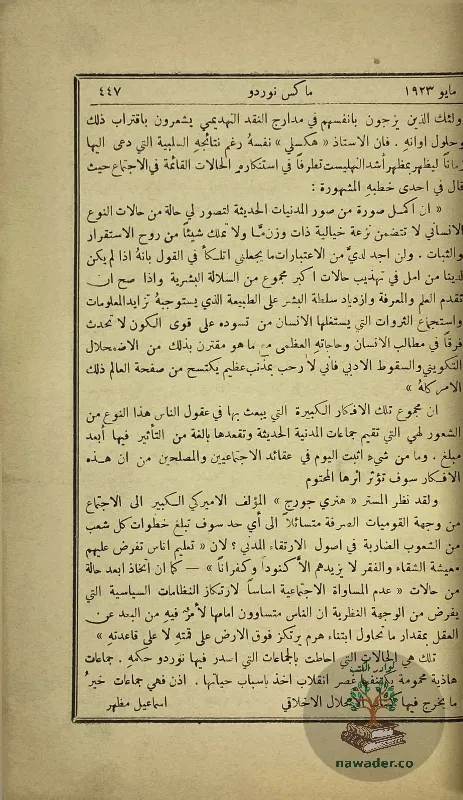 مايو ١٩٢٣ ماكس نوردو ٤٤٧
ولئك الذين يزجون بانفسهم في مدارج النقد التهديمي يشعرون باقتراب ذلك
وحلول اوانهِ . فان الاستاذ « هكسلي » نفسهُ رغم نتائجهِ السلبية التي دعى اليها
زماناً ليظهر بمظهر أشد النهليست تطرفاً في استنكارهِ الحالات القائمة في الاجتماع حيث
قال في احدى خطبهِ المشهورة :
« ان اكمل صورة من صور المدنيات الحديثة لتصور لي حالة من حالات النوع
الانساني لا تتضمن نزعة خيالية ذات وزن مّا ولا تملك شيئاً من روح الاستقرار
والثبات . ولن اجد لديَّ من الاعتبارات ما يجعلني اتلكأ في القول بانهُ اذا لم يكن
لدينا من امل في تهذيب حالات اكبر مجموع من السلالة البشرية واذا صح ان
تقدم العلم والمعرفة وازدياد سلطة البشر على الطبيعة الذي يستوجبهُ تزايد المعلومات
واستجماع الثروات التي يستغلها الانسان من تسوده على قوى الكون لا تحدث
فرقاً في مطالب الانسان وحاجاتهِ العظمى مع ما هو مقترن بذلك من الاضمحلال
التكويني والسقوط الادبي فاني لأرحب بمذنب عظيم يكتسح من صفحة العالم ذلك
الامر كلهُ »
ان مجموع تلك الافكار الكبيرة التي يبعث بها في عقول الناس هذا النوع من
الشعور لهي التي تقيم جماعات المدنية الحديثة وتقعدها بالغة من التأثير فيها أبعد
مبلغ . وما من شيء اثبت اليوم في عقائد الاجتماعيين والمصلحين من ان هذه
الافكار سوف تؤثر اثرها المحتوم
ولقد نظر المستر « هنري جورج » المؤلف الاميركي الكبير الى الاجتماع
من وجهة القوميات الصرفة متسائلاً الى أي حد سوف تبلغ خطوات كل شعب
من الشعوب الضاربة في اصول الارتقاء المدني ؟ لان « تعليم اناس تفرض عليهم
معيشة الشقاء والفقر لا يزيدهم الاَّ كنوداً وكفراناً » — كما ان اتخاذ ابعد حالة
من حالات « عدم المساواة الاجتماعية اساساً لارتكاز النظامات السياسية التي
يفرض من الوجهة النظرية ان الناس متساوون امامها لأمرٌ فيهِ من البعد عن
العقل بمقدار ما تحاول ابتناء هرم يرتكز فوق الارض على قمتهِ لا على قاعدتهِ »
تلك هي الحالات التي احاطت بالجماعات التي اصدر فيها نوردو حكمهُ . جماعات
هاذية محمومة يكتنفها عصر انقلاب اخذ باسباب حياتها . اذن فهي جماعات خيرُ
ما يخرج فيها الاخلاقي اسماعيل مظهر
نوادر الكتب
nawader.co